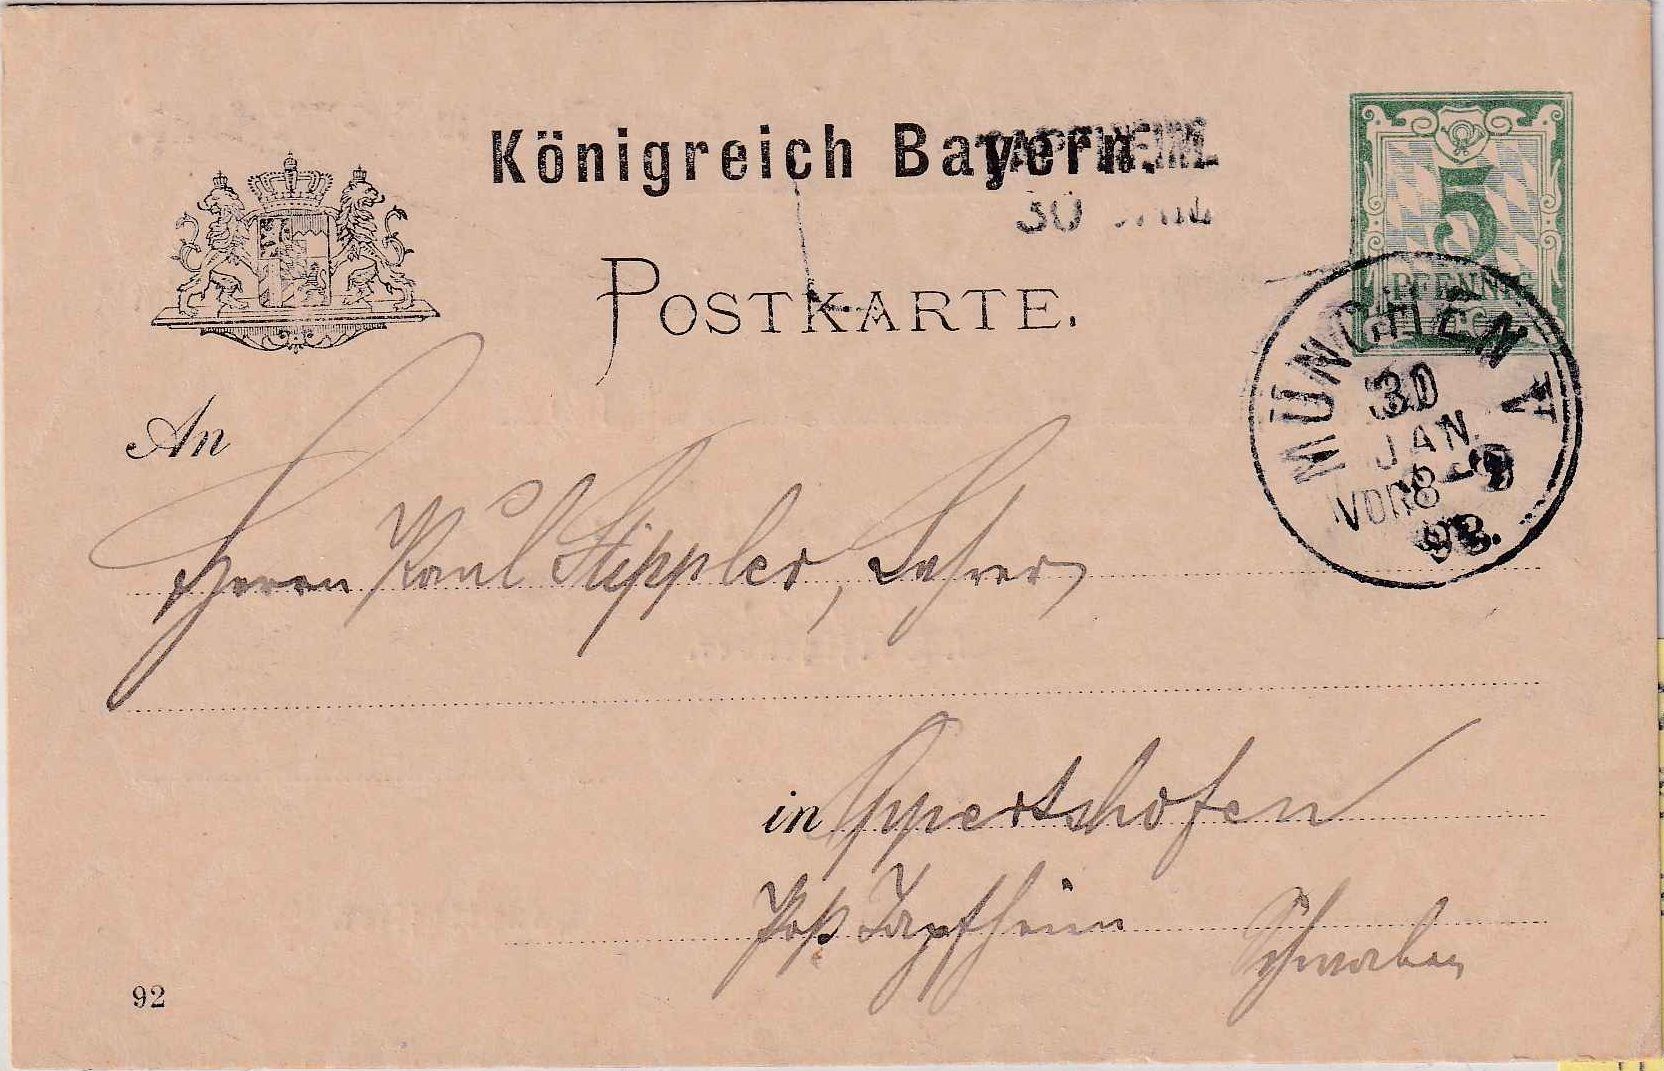 Königreich Bayern.
TAPFHEIM.
30 JAN
POSTKARTE.
5
PFENNIG
MÜNCHEN V
30
JAN.
VOR 8-9
93.
An
Herrn Paul Stippler, Lehrer
in Oppertshofen
Post Tapfheim Schwaben
92